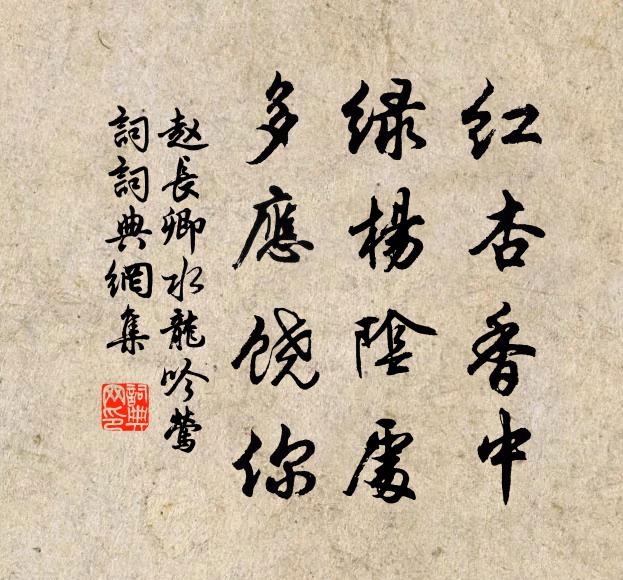 红杏香中
绿楊陰處
多應饶你
赵長卿水龍吟鶯
詞詞典網集
詞典網印